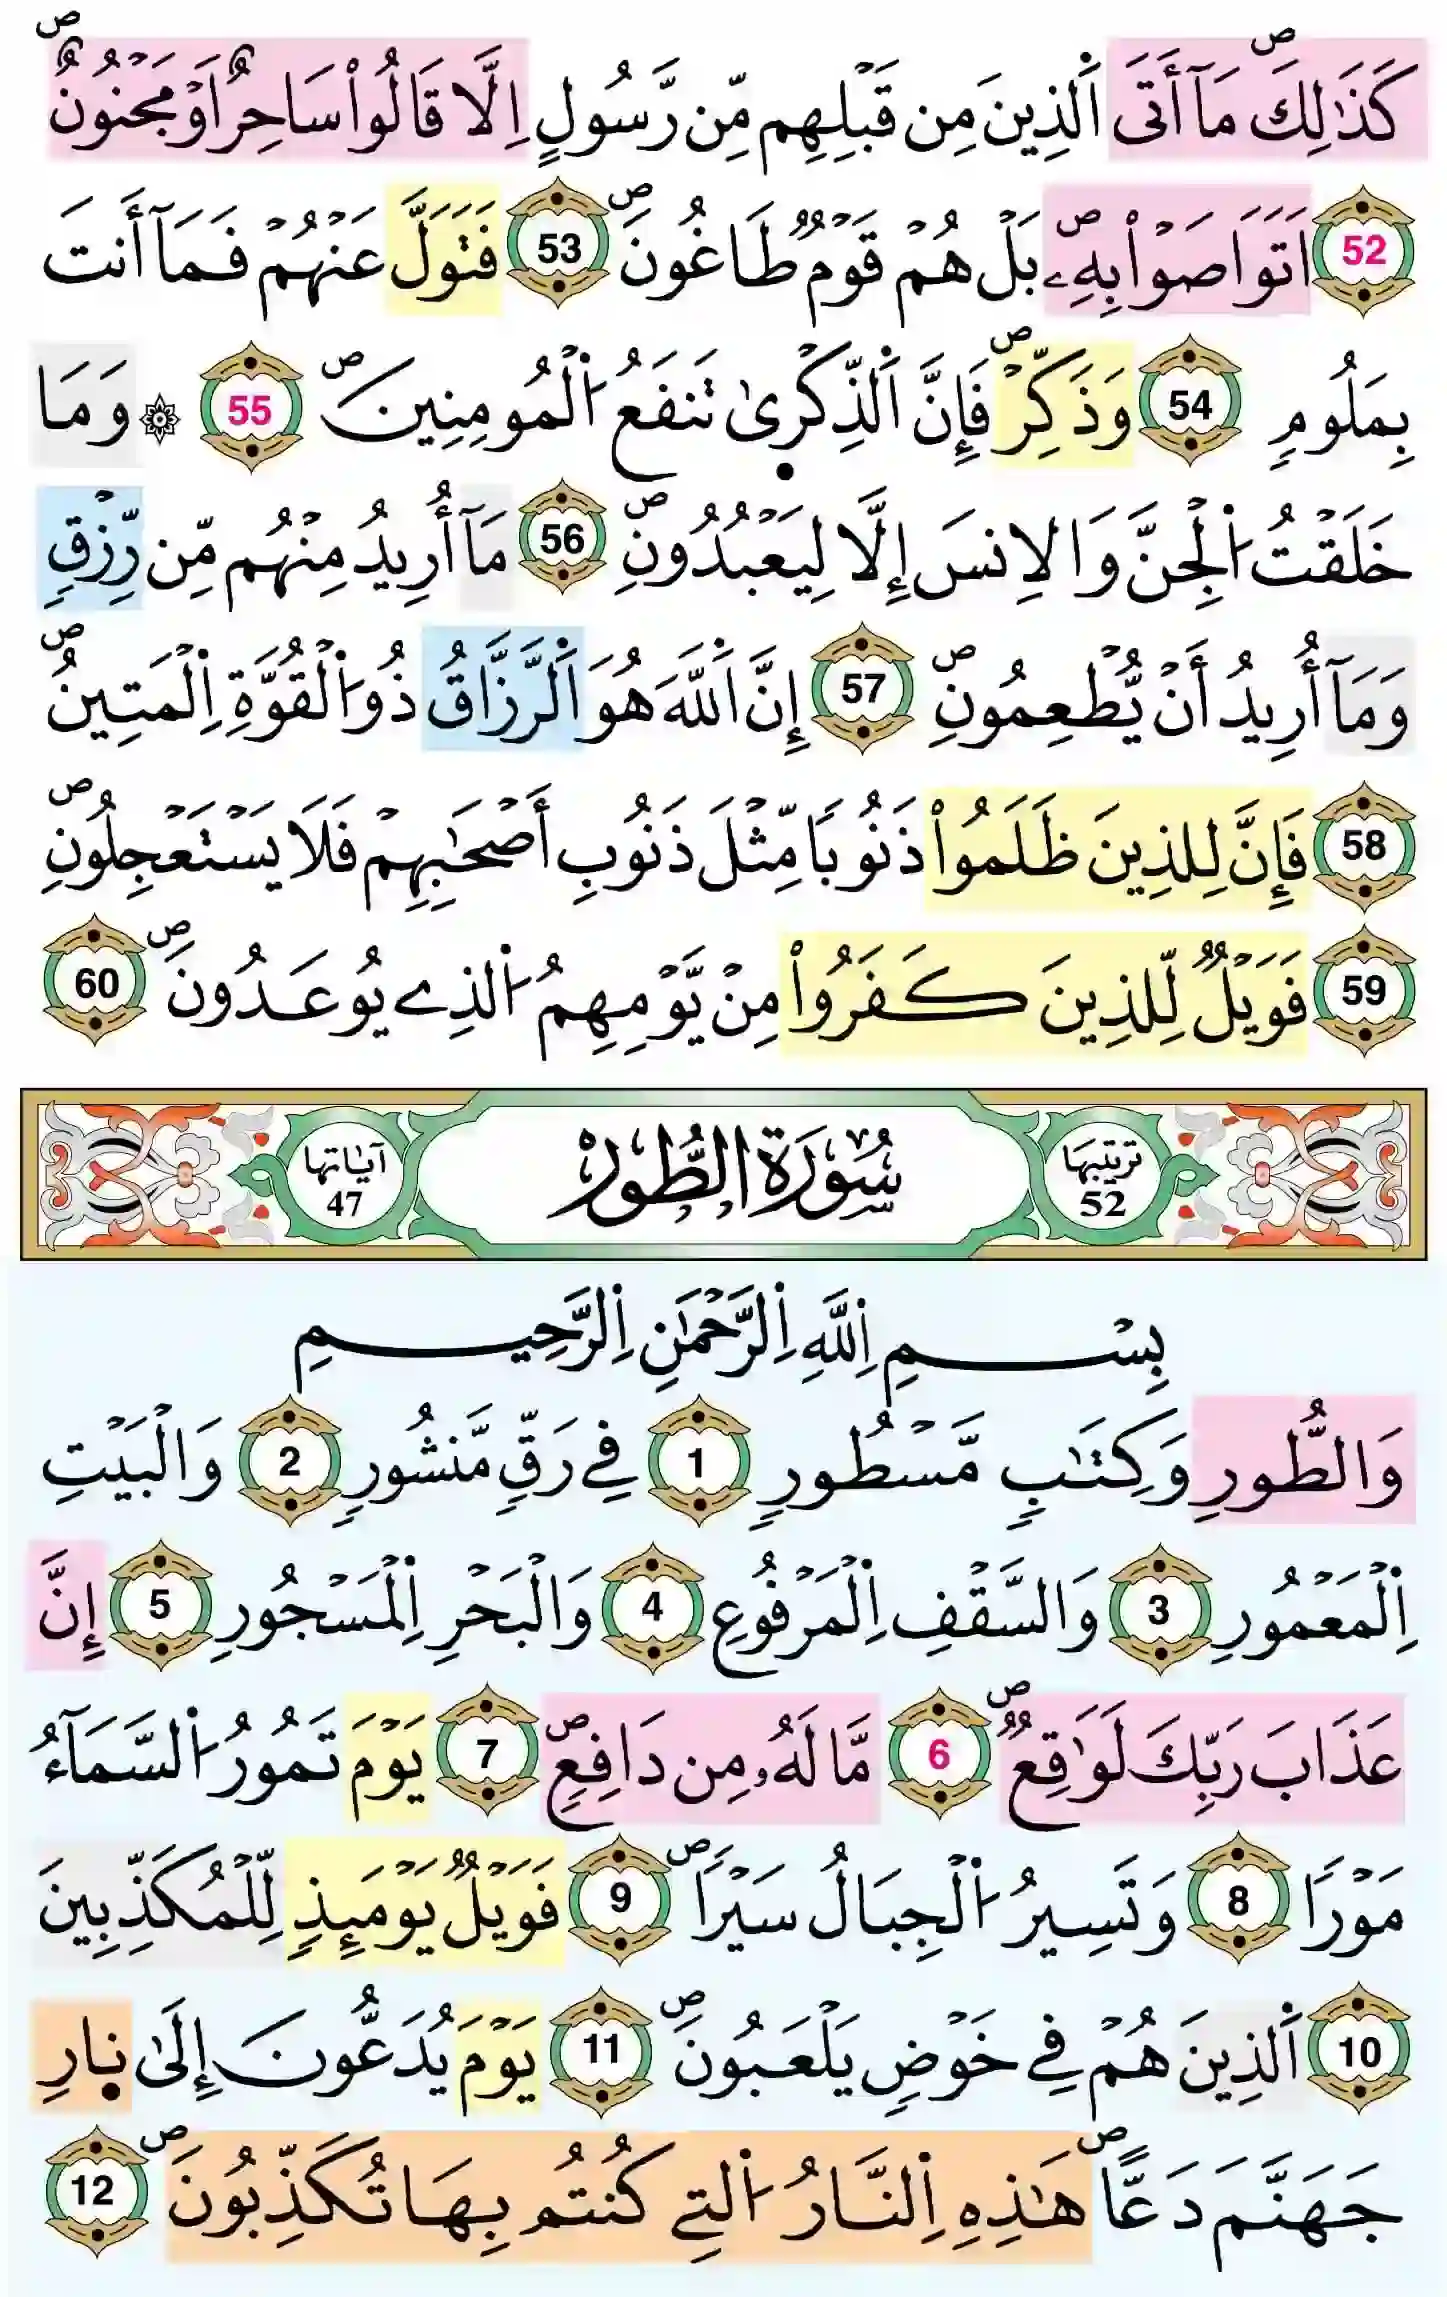 كَذَٰلِكَ مَآ أَتَى اَ۬لذِينَ مِن قَبْلِهِم مِّن رَّسُولٍ اِلَّا قَالُواْ سَاحِرٌ اَوْ مَجْنُونٌۖ
52 اَتَوَاصَوْاْ بِهِۦۖ بَلْ هُمْ قَوْمٞ طَاغُونَۖ 53 فَتَوَلَّ عَنْهُمْ فَمَآ أَنتَ
بِمَلُومٖ 54 وَذَكِّرْۖ فَإِنَّ اَ۬لذِّكْر۪ىٰ تَنفَعُ اُ۬لْمُومِنِينَۖ 55 ۞ وَمَا
خَلَقْتُ اُ۬لْجِنَّ وَالِانسَ إِلَّا لِيَعْبُدُونِۖ 56 مَآ أُرِيدُ مِنْهُم مِّن رِّزْقٖ
وَمَآ أُرِيدُ أَنْ يُّطْعِمُونِۖ 57 إِنَّ اَ۬للَّهَ هُوَ اَ۬لرَّزَّاقُ ذُو اُ۬لْقُوَّةِ اِ۬لْمَتِينُۖ
58 فَإِنَّ لِلذِينَ ظَلَمُواْ ذَنُوبٗا مِّثْلَ ذَنُوبِ أَصْحَٰبِهِمْ فَلَا يَسْتَعْجِلُونِۖ
59 فَوَيْلٞ لِّلذِينَ كَفَرُواْ مِنْ يَّوْمِهِمُ اُ۬لذِے يُوعَدُونَۖ 60
ترتيبها 52 سُورَةُ الطُّورِ آيَاتها 47
بِسْمِ اِ۬للَّهِ اِ۬لرَّحْمَٰنِ اِ۬لرَّحِيمِ
وَالطُّورِ وَكِتَٰبٖ مَّسْطُورٖ 1 فِے رَقّٖ مَّنشُورٖ 2 وَالْبَيْتِ
اِ۬لْمَعْمُورِ 3 وَالسَّقْفِ اِ۬لْمَرْفُوعِ 4 وَالْبَحْرِ اِ۬لْمَسْجُورِ 5 إِنَّ
عَذَابَ رَبِّكَ لَوَٰقِعٞۖ 6 مَّا لَهُۥ مِن دَافِعٖۖ 7 يَوْمَ تَمُورُ اُ۬لسَّمَآءُ
مَوْرٗا 8 وَتَسِيرُ اُ۬لْجِبَالُ سَيْرٗاۖ 9 فَوَيْلٞ يَوْمَئِذٖ لِّلْمُكَذِّبِينَ
10 اَ۬لذِينَ هُمْ فِے خَوْضٖ يَلْعَبُونَۖ 11 يَوْمَ يُدَعُّونَ إِلَىٰ ن۪ارِ
جَهَنَّمَ دَعًّاۖ هَٰذِهِ اِ۬لنَّارُ اُ۬لتِے كُنتُم بِهَا تُكَذِّبُونَۖ 12